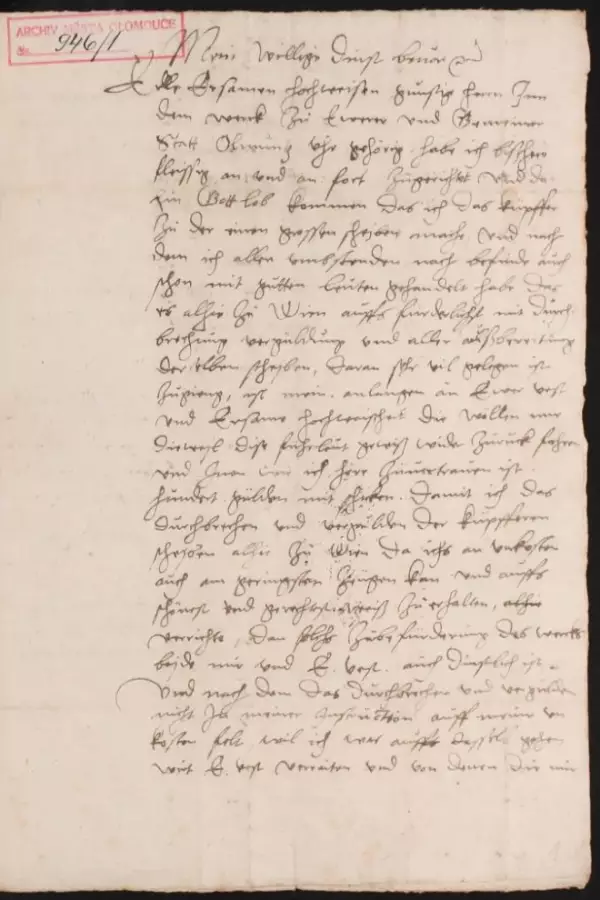 ARCHIV MĚSTA OLOMOUCE
No. 946/1
Mein willige dinst bevor
Edle Ersamen hochweisen gunstig herrn Zum
dem werck zu Ewerer und Gemeiner
Statt Olmunz Uhr gehörig habe ich bisher
fleissig an und an fort zugericht und da
hin Gott lob kommen das ich das kupffer
zu der einen grossen scheyben mache und nach
dem ich allen umbstenden nach befinde auch
schon mit gutten leuten gehandelt habe das
es alhie zu Wien auffs furderlichst mit durch
brechung vergüldung und aller außbereitung
derselben scheyben, daran sehr vil gelegen ist
zugieng, ist mein anlangen an Ewer vest
und Ersame hochweisheit die wöllen mir
dieweyl dise fuhrleut gewiß wider zuruck fahren
und Inen wie ich höre zuvertrauen ist
hundert gülden mit schicken. damit ich das
durchbrechen und vergülden der kupfferen
scheyben alhie zu Wien da ichs an unkosten
auch am geringsten zeugen kan und auffs
schönest und zu erhalten, alhie
verrichte, dan solchs zubefurderung des wercks
beyde mir und E. vest. auch dinstlich ist.
Und nach dem das durchbrechen und vergülden
nicht In meiner Instruction auff meine un
kosten felt wil ich was auff dasselb gehen
wirt E. vest verraiten und von denen die mir